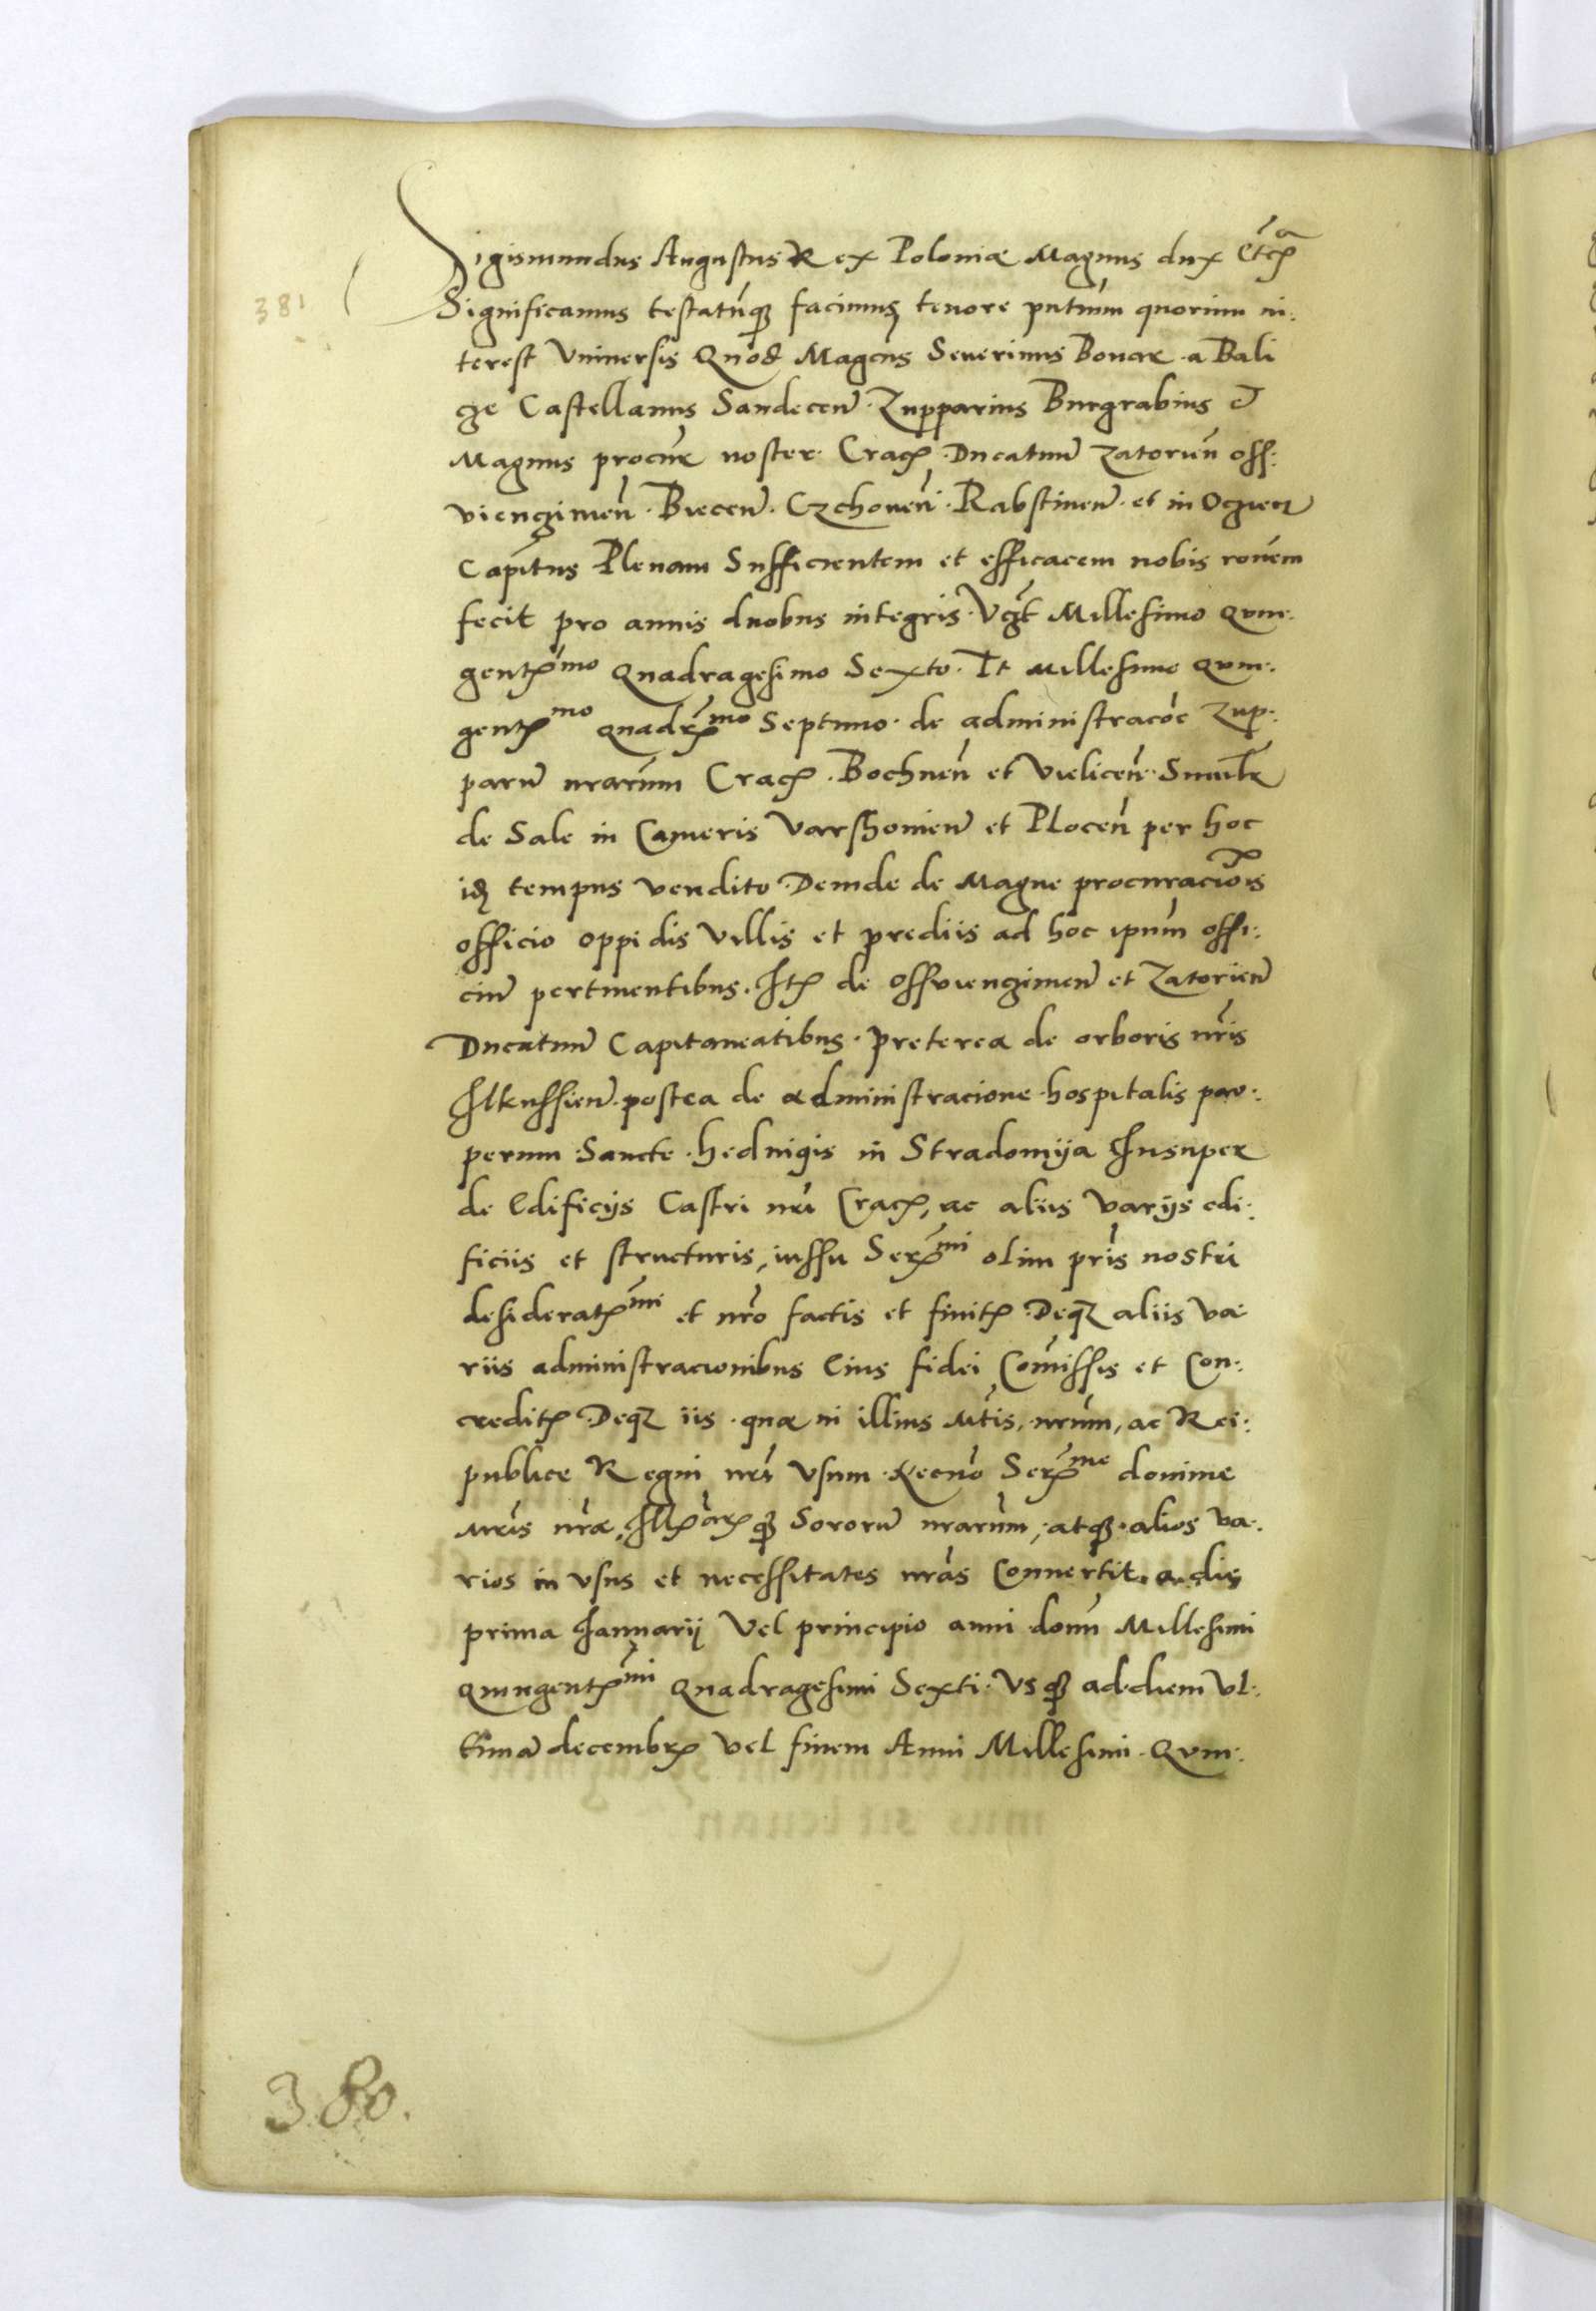 Sigismundus Augustus Rex Poloniæ Magnus dux Etcꝭa
381
Significamus testatūqꝫ facimus tenore pn̄tium quorum in:
terest Vniuersis Quod Magcūs Seuerinus Bonar a Bali
cze Castellanus Sandecen̄ Zupparius Burgrabius et
Magnus procur̄ noster Cracꝭ Ducatuū Zatorien̄ oss:
viencgimen̄ Biecen̄ Czchouen̄ Rabstinen̄ et in Ogwen
Capitus Plenam Sufficientem et efficacem nobis rōnem
fecit pro annis duobus integris Vcz̄t Millesimo Quin:
gentꝭmo Quadragesimo Sexto It Millesimo Quin:
gentꝭmo quadrꝭmo Septimo de administracōe Zup:
parū nrarūm Cracꝭ Bochnen̄ et Vielicen̄ Similr̄
de Sale in Cameris Varshouien̄ et Plocen̄ per hoc
idꝫ tempus vendito Deinde de Magne procuraciōis
officio oppidis Villis et prediis ad hoc ipsum offi:
ciū pertinentibus. Itꝭ de Ossviencgimen̄ et Zatorien̄
Ducatuū Capitaneatibus. Preterea de orboris nr̄is
Ilkussien̄ postea de administracione hospitalis pau:
perum Sancte Heduigis in Stradomija Insuper
de Edificijs Castri nr̄i Cracꝭ, ac aliis varijs edi:
ficiis et structuris, iussu Serꝭmi olim pr̄is nostri
desideratꝭmi et nr̄o factis et finitꝭ Deqꝫ aliis va
riis administracionibus Eius fidei Com̄issis et Con:
creditꝭ Deqꝫ iis quæ in illius Mt̄is, nr̄um, ac Rei:
publice Regni nr̄i Vsum Necnō Serꝭme domine
Mr̄is nr̄æ, Illꝭarꝭ qꝫ Sororū nrarūm, atqꝫ alios va:
rios in vsus et necessitates nr̄as Conuertit a die
prima Januarij Vel principio anni domn̄ Millesimi
Quingentꝭmi Quadragesimi Sexti Vsqꝫ ad diem Vl:
timā decembrꝭ vel finem Anni Millesimi Quin:
380.